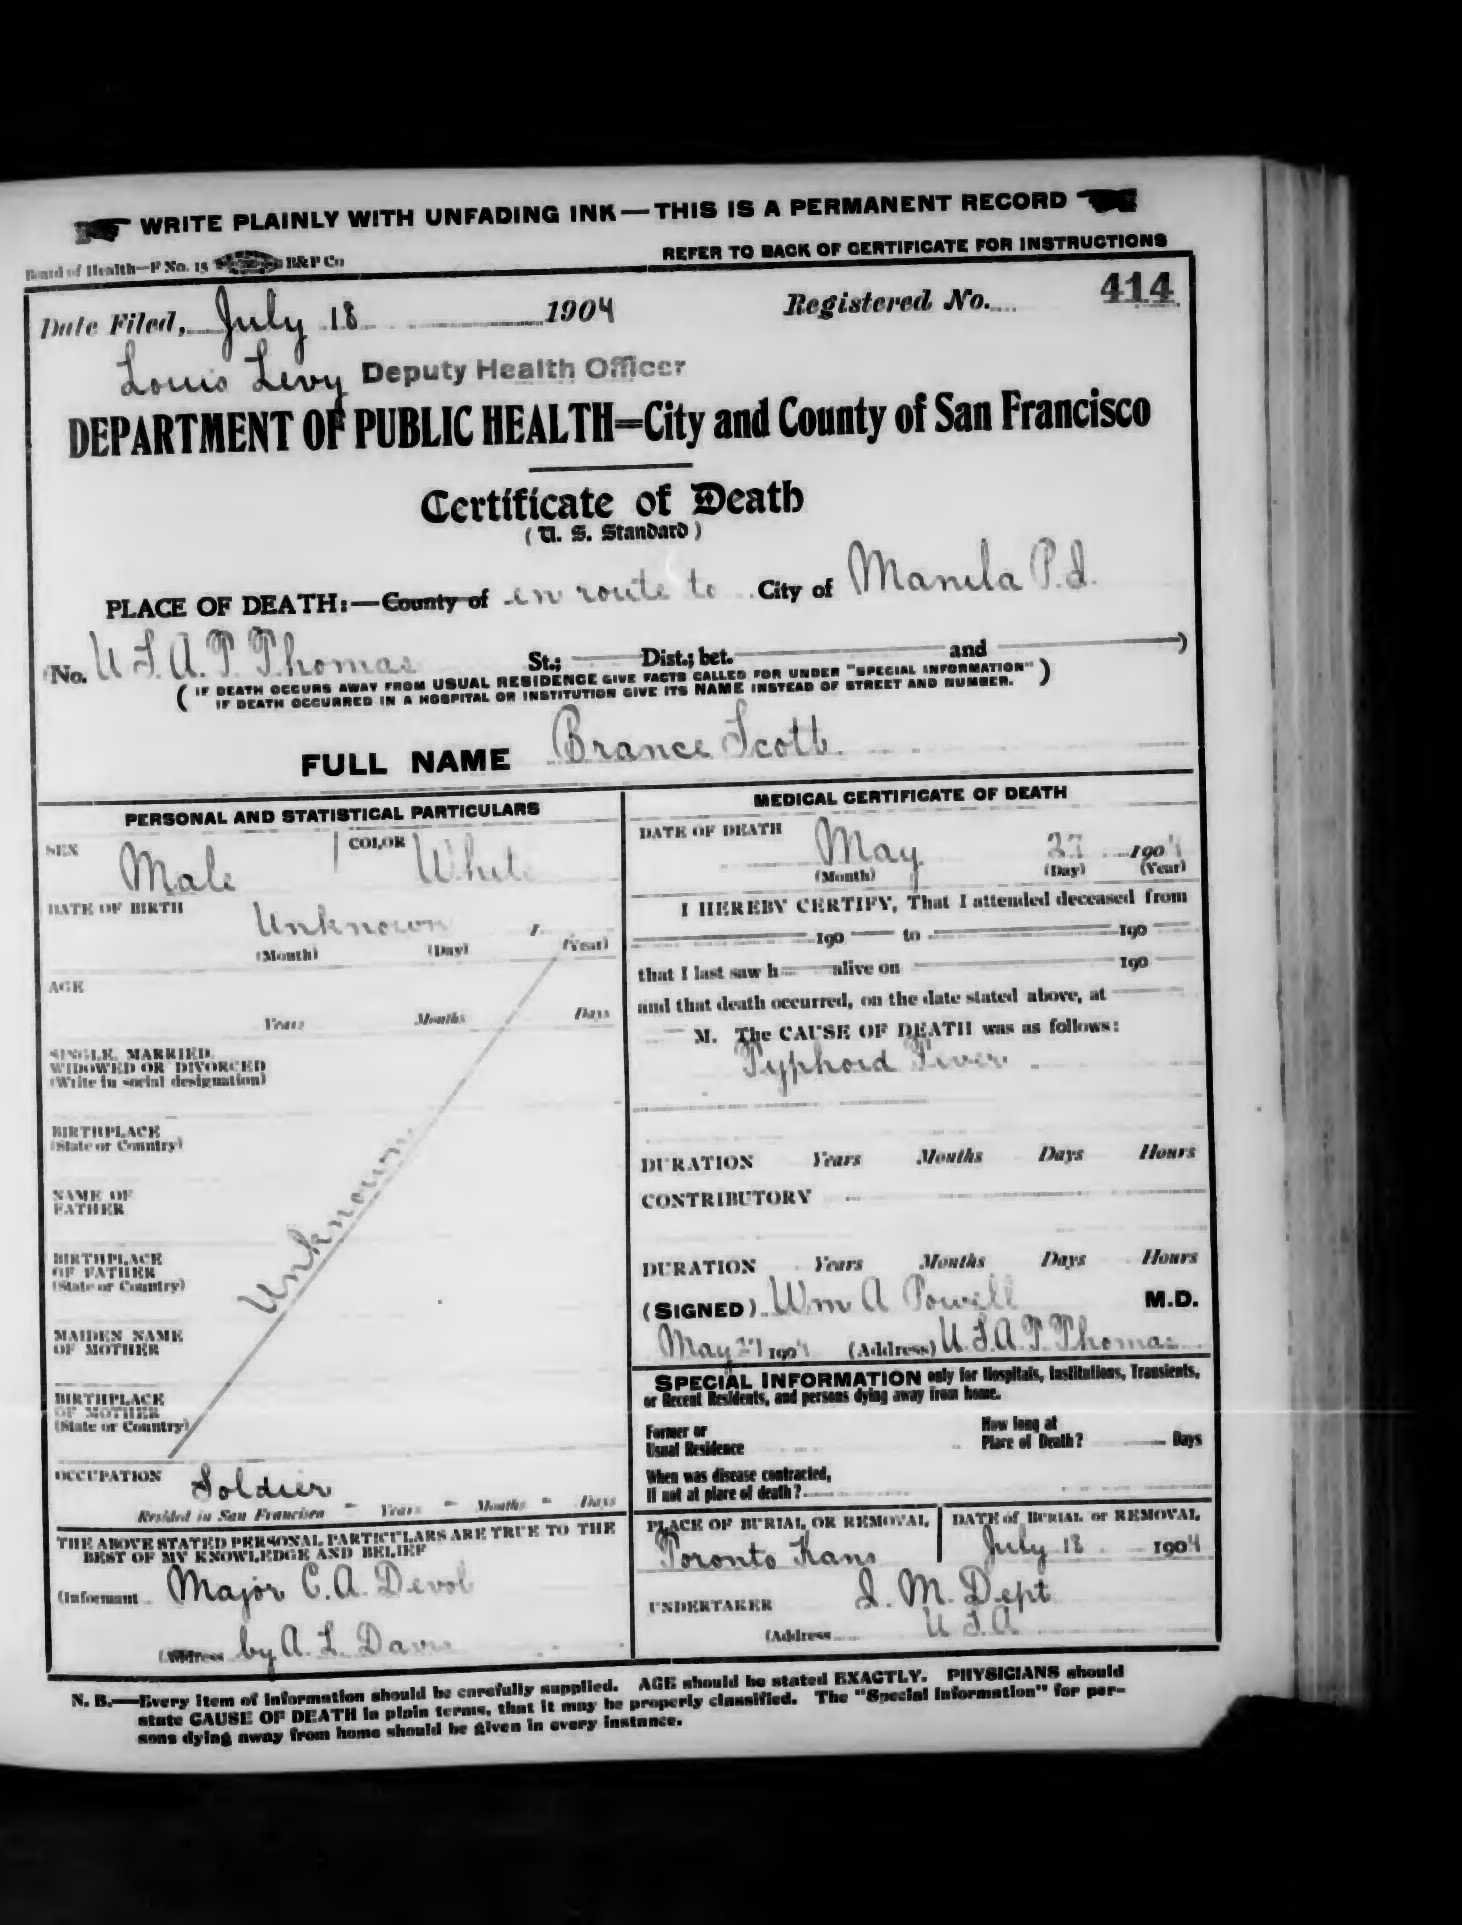 WRITE PLAINLY WITH UNFADING INK—THIS IS A PERMANENT RECORD
Board of Health—F No. 15 B&P Co
REFER TO BACK OF CERTIFICATE FOR INSTRUCTIONS
Date Filed, July 18 1904 Registered No. 414
Louis Levy Deputy Health Officer
DEPARTMENT OF PUBLIC HEALTH=City and County of San Francisco
Certificate of Death
(U. S. Standard)
PLACE OF DEATH:—County of en route to City of Manila P.I.
(No. U S. A. T. Thomas St.; Dist.; bet. and )
( IF DEATH OCCURS AWAY FROM USUAL RESIDENCE GIVE FACTS CALLED FOR UNDER "SPECIAL INFORMATION" )
IF DEATH OCCURRED IN A HOSPITAL OR INSTITUTION GIVE ITS NAME INSTEAD OF STREET AND NUMBER.
FULL NAME Brance Scott
PERSONAL AND STATISTICAL PARTICULARS
SEX Male COLOR White
DATE OF BIRTH Unknown 1
(Month) (Day) (Year)
AGE
Years Months Days
SINGLE, MARRIED,
WIDOWED OR DIVORCED
(Write in social designation)
BIRTHPLACE
(State or Country)
NAME OF
FATHER
Unknown
BIRTHPLACE
OF FATHER
(State or Country)
MAIDEN NAME
OF MOTHER
BIRTHPLACE
OF MOTHER
(State or Country)
OCCUPATION Soldier
Resided in San Francisco - Years - Months - Days
THE ABOVE STATED PERSONAL PARTICULARS ARE TRUE TO THE
BEST OF MY KNOWLEDGE AND BELIEF
(Informant Major C. A. Devol
(Address by A. L. Davis
MEDICAL CERTIFICATE OF DEATH
DATE OF DEATH
May 27 1904
(Month) (Day) (Year)
I HEREBY CERTIFY, That I attended deceased from
190 to 190
that I last saw h alive on 190
and that death occurred, on the date stated above, at
M. The CAUSE OF DEATH was as follows:
Typhoid Fever
DURATION Years Months Days Hours
CONTRIBUTORY
DURATION Years Months Days Hours
(SIGNED) Wm A Powell M.D.
May 27 1904 (Address) U. S. A. T. Thomas
SPECIAL INFORMATION only for Hospitals, Institutions, Transients,
or Recent Residents, and persons dying away from home.
Former or
Usual Residence
How long at
Place of Death? Days
When was disease contracted,
If not at place of death?
PLACE OF BURIAL OR REMOVAL
Toronto Kans
DATE of BURIAL or REMOVAL
July 18 1904
UNDERTAKER Q. M. Dept
(Address U S A
N. B.—Every item of information should be carefully supplied. AGE should be stated EXACTLY. PHYSICIANS should
state CAUSE OF DEATH in plain terms, that it may be properly classified. The "Special Information" for per-
sons dying away from home should be given in every instance.